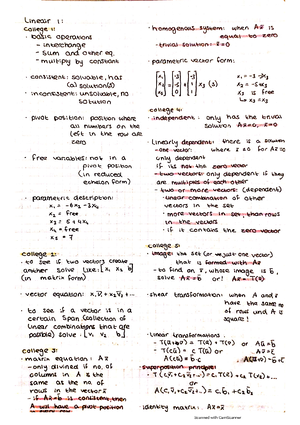 Linear 1:
College 1:
• basic operations
- interchange
- sum and other eq.
- multiply by constant
• consistent: solvable, has
(a) solution(s)
• inconsistent: unsolvable, no
solution
• pivot position: position where
all numbers on the
left in the row are
zero
• free variables: not in a
pivot position
(in reduced
echelon form)
• parametric description:
x₂ = free
x₄ = free
College 2:
• to see if two vectors create
another solve
(in matrix form)
• vector equation: x₁v̄₁ + x₂v̄₂ + ...
• to see if a vector is in a
certain span (collection of
linear combinations that are
possible) solve: [v₁ v₂ b]
College 3:
• matrix equation: Ax̄
- only divined if no. of
column in A is the
same as the no. of
rows in the vector x̄
- if Ax̄=b is consistent, then
A will have a pivot position
• homogenous system: when Ax̄ is
equal to zero
- trivial solution: x̄=0
• parametric vector form:
x₃ is free
College 4:
• independent: only has the trivial
solution Ax̄=0, x̄=0
• Linearly dependent: there is a solution
- one vector: where x̄≠0 for Ax̄=0
only dependent
if its not the zero vector
- two vectors only dependent if they
are multiples of each other
- two or more vectors (dependent)
- linear combination of other
vectors in the set
- more vectors in set, than rows
in the vectors
- if it contains the zero vector
College 5:
• image: the set (or just one vector)
that is formed with Ax̄
• to find an x̄, whose image is b̄,
solve Ax̄=b̄
• shear transformation: when A and x̄
have the same no
of rows and A is
square!
• linear transformations
• superposition principle:
• identity matrix: Ax̄=x̄
Scanned with CamScanner